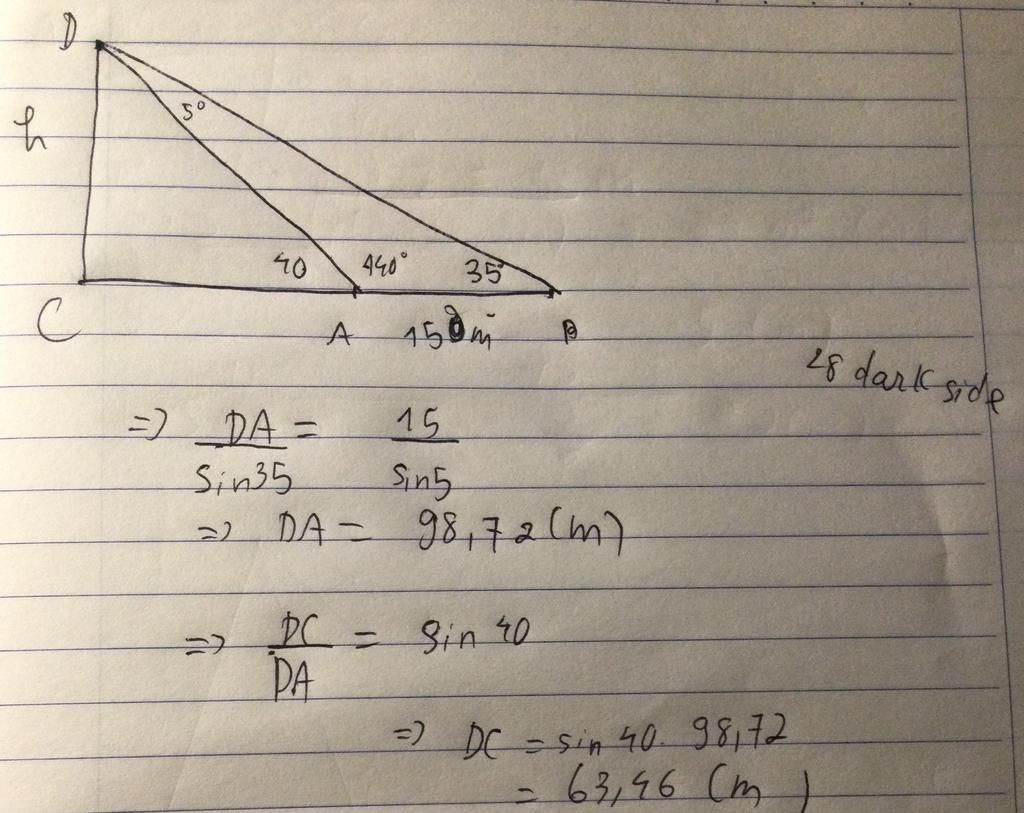 D
5°
h
40 140° 35°
C A 150 m B
28 dark side
=> DA/Sin35 = 15/sin5
=> DA = 98,72 (m)
=> DC/DA = Sin 40
=> DC = sin 40. 98,72
= 63,46 (m)